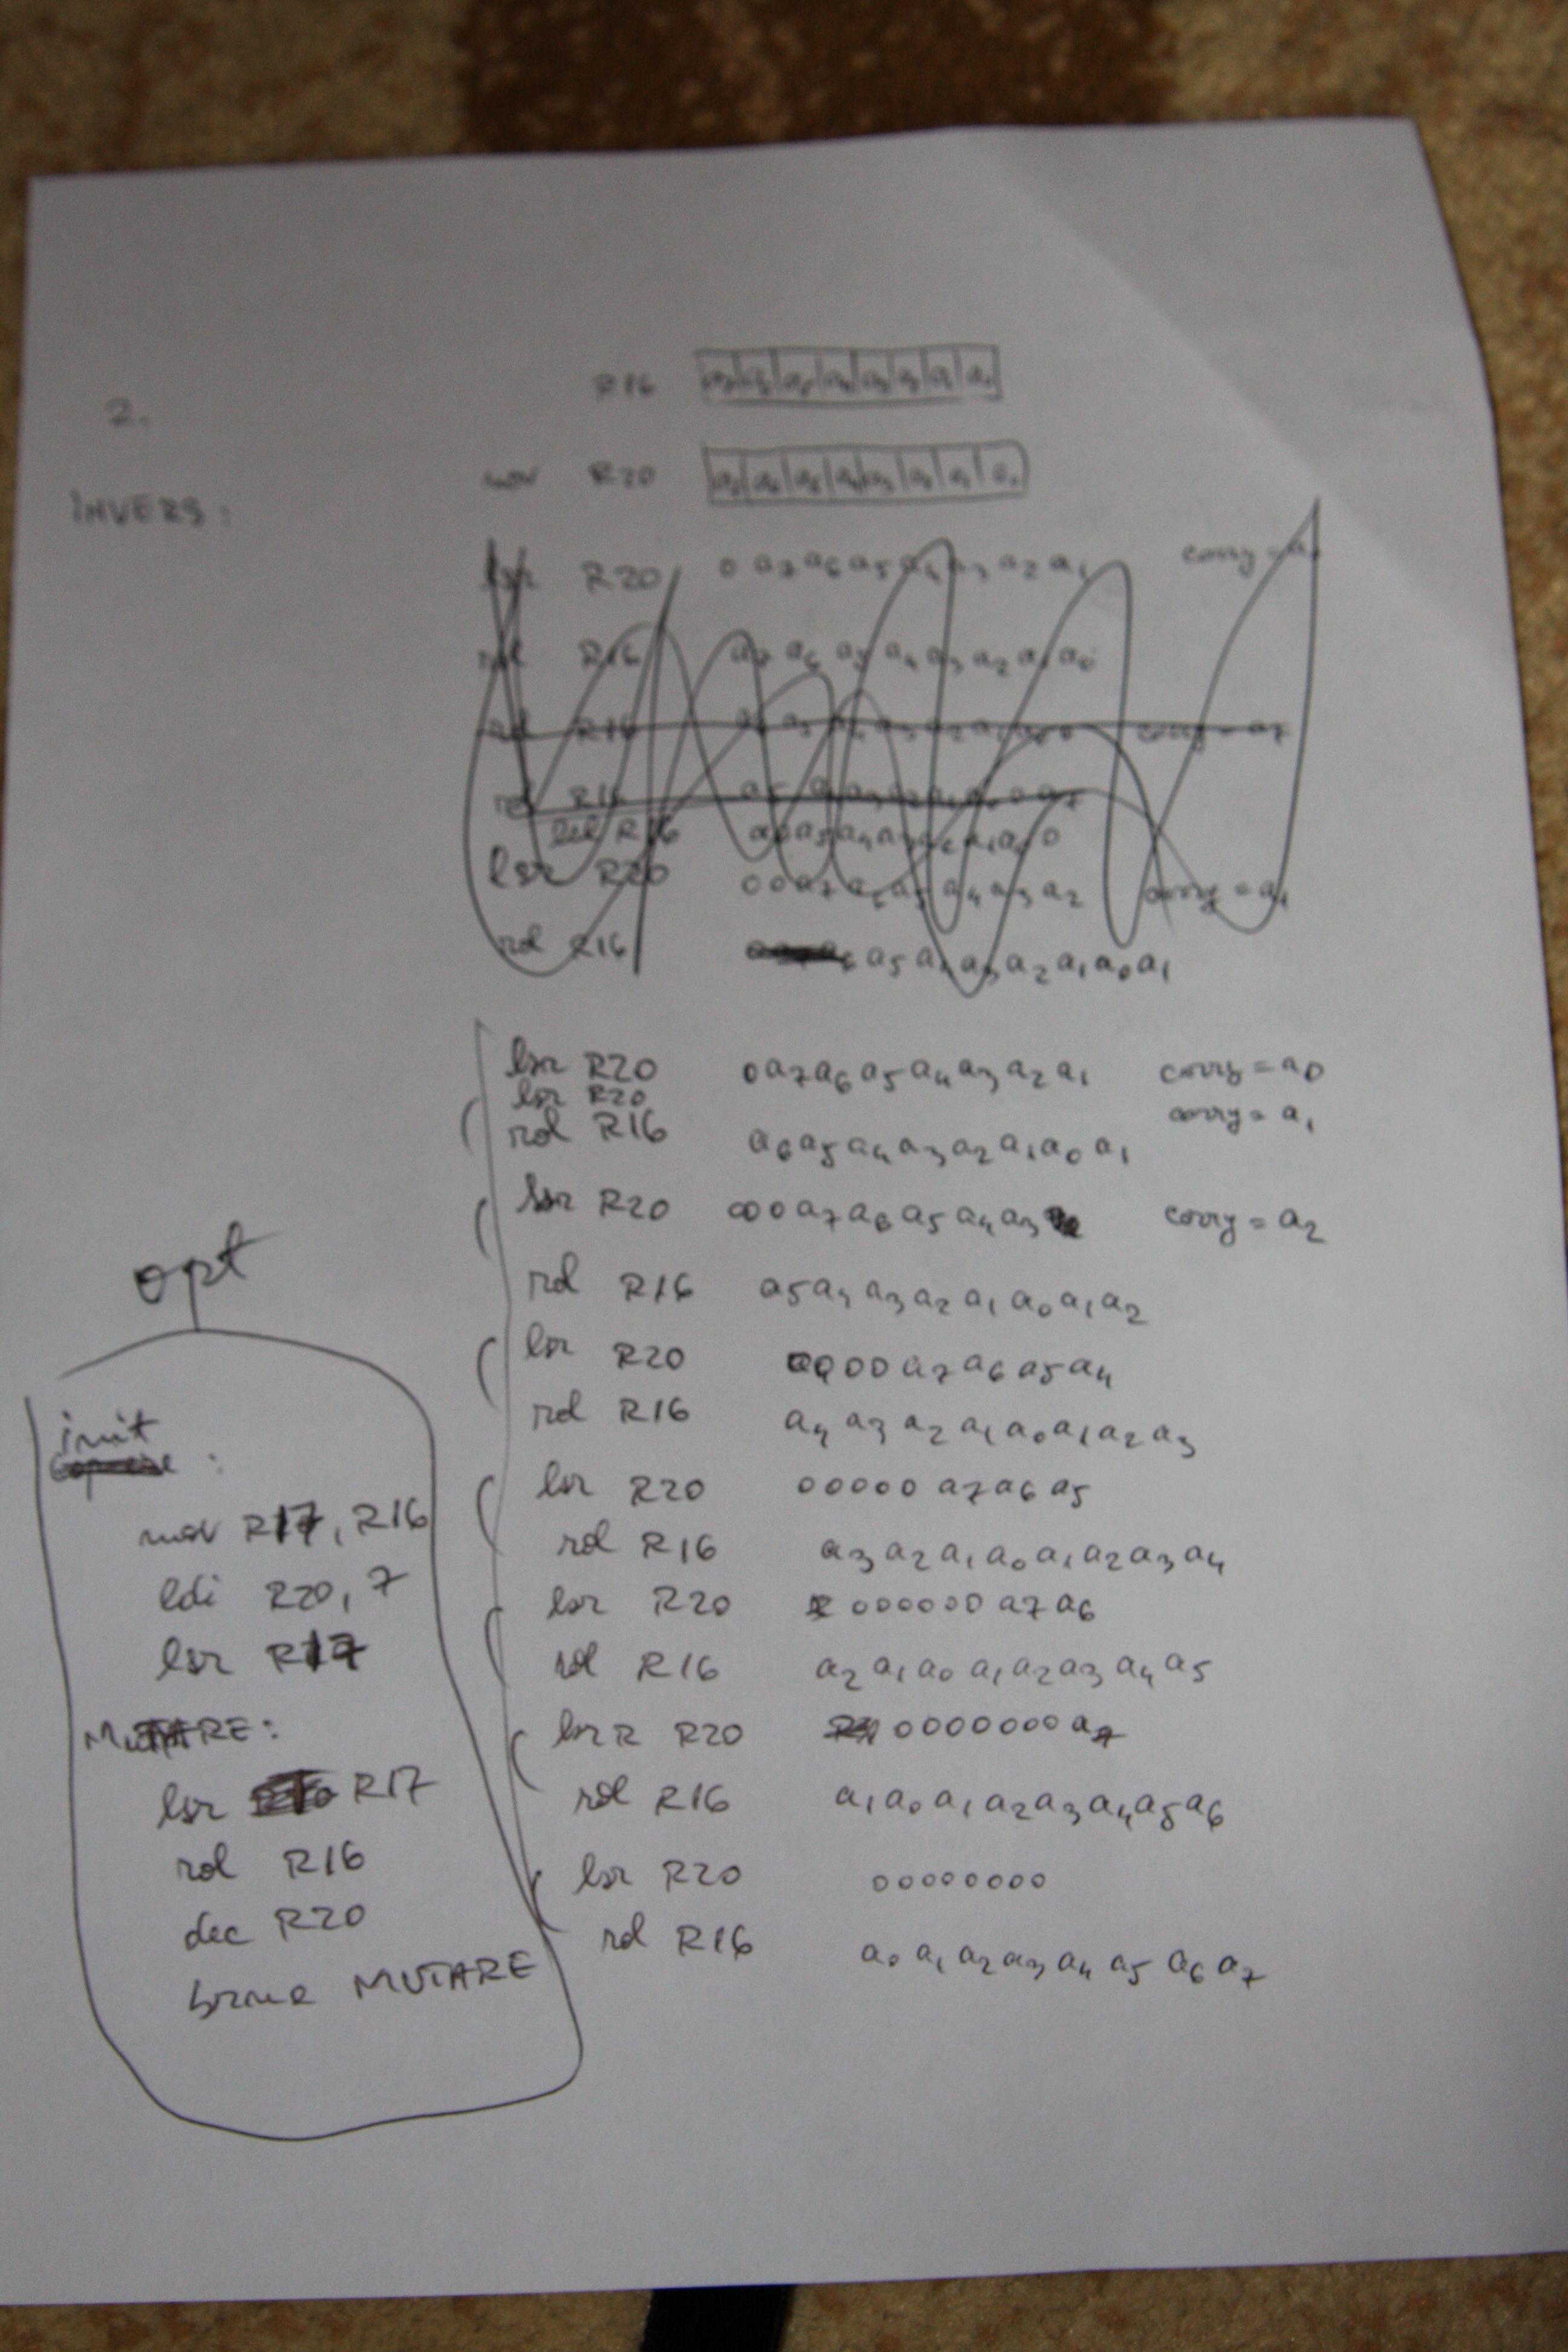 2.
R16 a7 a6 a5 a4 a3 a2 a1 a0
mov R20 a7 a6 a5 a4 a3 a2 a1 a0
INVERS:
lsr R20 0 a7 a6 a5 a4 a3 a2 a1 carry =
rol R16 a7 a6 a5 a4 a3 a2 a1 a0
rol R16 carry = a7
rol R16
lsl R16
lsr R20 0 0 a7 a6 a5 a4 a3 a2 carry = a1
rol R16 a5 a4 a3 a2 a1 a0 a1
lsr R20 0 a7 a6 a5 a4 a3 a2 a1 carry = a0
lsr R20 carry = a1
rol R16 a6 a5 a4 a3 a2 a1 a0 a1
lsr R20 000 a7 a6 a5 a4 a3 carry = a2
rol R16 a5 a4 a3 a2 a1 a0 a1 a2
lsr R20 0000 a7 a6 a5 a4
rol R16 a4 a3 a2 a1 a0 a1 a2 a3
lsr R20 00000 a7 a6 a5
rol R16 a3 a2 a1 a0 a1 a2 a3 a4
lsr R20 000000 a7 a6
rol R16 a2 a1 a0 a1 a2 a3 a4 a5
lsr R R20 0000000 a7
rol R16 a1 a0 a1 a2 a3 a4 a5 a6
lsr R20 00000000
rol R16 a0 a1 a2 a3 a4 a5 a6 a7
opt
init :
mov R17, R16
ldi R20, 7
lsr R17
MUTARE:
lsr R17
rol R16
dec R20
brne MUTARE